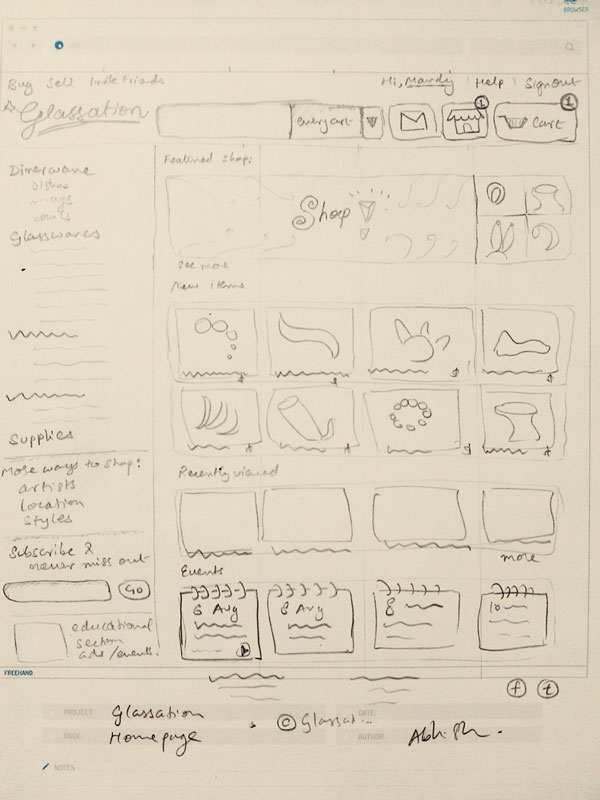 BROWSER
Buy Sell Invite Friends
Hi, Mandy Help Signout
Glassation
everyart
1
1
Cart
Featured shop:
Dinnerware
Dishes
mugs
bowls
Shop
Glasswares
See more
New items
Supplies
Recently viewed
More ways to shop:
artists
location
styles
Subscribe &
never miss out
more
Events
GO
8 Aug
8 Aug
8
10
educational
section
ads/events.
FREEHAND
f t
PROJECT Glassation
DATE
© Glassat...
PAGE Homepage
AUTHOR
NOTES